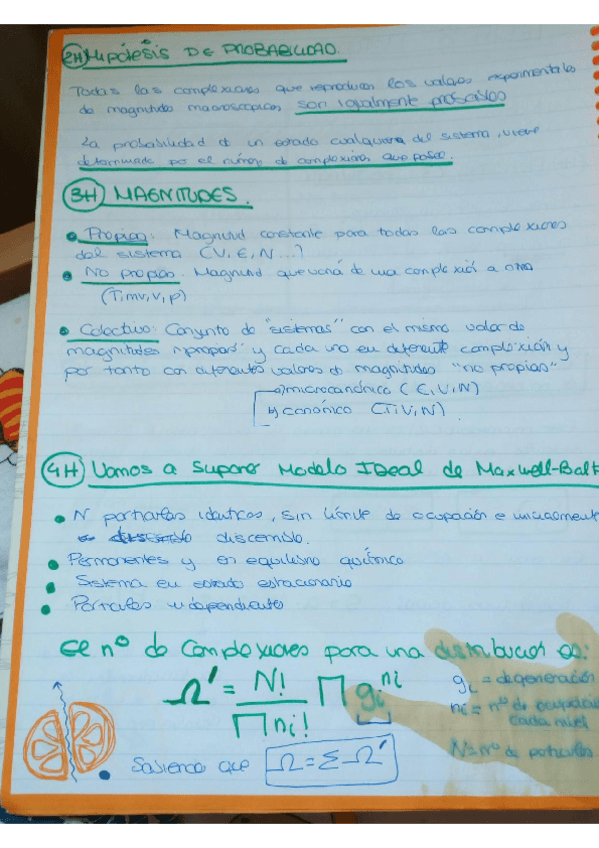 2H Hipótesis DE PROBABILIDAD.
Todas las complexiones que reproducen los valores experimentales
de magnitudes macroscopicas son igualmente probables
La probabilidad de un estado cualquiera del sistema, viene
determinada por el número de complexiones que posee.
3H MAGNITUDES.
Propias: Magnitud constante para todas las complexiones
del sistema (V, E, N...)
No propias: Magnitud que varía de una complexió a otra
(T, mv, v, p)
Colectivo: Conjunto de "sistemas" con el mismo valor de
magnitudes "propias" y cada uno en diferente complexión y
por tanto con diferentes valores de magnitudes "no propias"
a) microcanónico (E, V, N)
b) canónico (T, V, N)
4H Vamos a Suponer Modelo Ideal de Maxwell-Balt
N partículas identicas, sin límite de ocupación e
discernible.
Permanentes y en equilibrio químico
Sistema en estado estacionario
Partículas independientes
El nº de Complexiones para una distribución es:
Ω' = N! / Π ni! Π gi^ni
gi = degeneración
ni = nº de ocupación
cada nivel
N = nº de partículas
Sabiendo que Ω = Σ Ω'